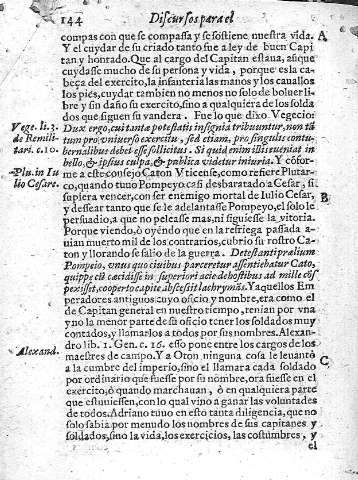 144 Discursos para el
compas con que se compassa y se sostiene nuestra vida. A
Y el cuydar de su criado tanto fue a ley de buen Capi
tan y honrado. Que al cargo del Capitan estaua, aũque
cuydasse mucho de su persona y vida, porque es la ca
beça del exercito, la infanteria las manos y los cauallos
los pies, cuydar tambien no menos no solo de boluer li
bre y sin daño su exercito, sino a qualquiera de los solda
dos que siguen su vandera. Fue lo que dixo Vegecio:
Vege. li. 3. Dux ergo, cui tantæ potestatis insignia tribuuntur, non tã
de Remili- tum pro vniuerso exercitu, sed etiam, pro singulis contu-
tari. c. 10. bernalibus debet esse sollicitus. Si quid enim illis eueniat in
bello, & ipsius culpa, & publica videtur iniuria. Y cõfor-
Plu. in Iu me a este consejo Caton Vticense, como refiere Plutar-
lio Cesare. co, quando tuuo Pompeyo casi desbaratado a Cesar, si
supiera vencer, con ser enemigo mortal de Iulio Cesar, B
y dessear tanto que se le adelantasse Pompeyo, el solo le
persuadio, a que no peleasse mas, ni siguiesse la vitoria.
Porque viendo, ò oyendo que en la refriega passada a-
uian muerto mil de los contrarios, cubrio su rostro Ca-
ton y llorando se salio de la guerra. Detestanti prælium
Pompeio, vnus quo ciuibus parceretur assentiebatur Cato,
quippe cũ cæcidisse in superiori acie de hostibus ad mille cõs
pexisset, cooperto capite, abscessit lachrymãs. Y aquellos Em
peradores antiguos cuyo oficio y nombre, era como el
de Capitan general en nuestro tiempo, tenian por vna
y no la menor parte de su oficio tener los soldados muy
contados, y llamarlos a todos por sus nombres. Alexan-
Alexand. dro lib. 1. Gen. c. 16. esso pone entre los cargos de los
maestres de campo. Y a Oton ninguna cosa le leuantò C
a la cumbre del imperio, sino el llamara cada soldado
por ordinario que fuesse por su nombre, ora fuesse en el
exercito, ò quando marchauan, ò en qualquiera parte
que estuuiessen, con lo qual vino a ganar las voluntades
de todos. Adriano tuuo en esto tanta diligencia, que no
solo sabia por menudo los nombres de sus capitanes y
soldados, sino la vida, los exercicios, las costumbres, y
el